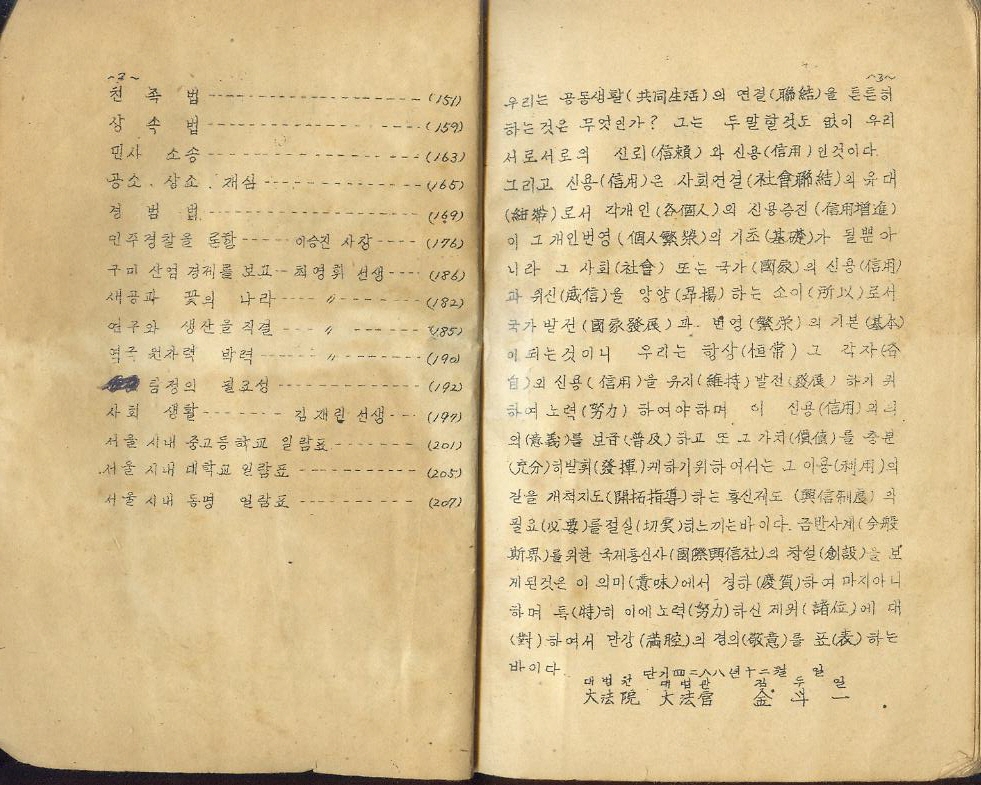 ~2~
친 족 법 (151)
상 속 법 (159)
민사 소송 (163)
공소. 상소. 재심 (165)
경 범 법 (169)
민주경찰을 논함 이승진 사장 (176)
구미 산업 경제를 보고 최영휘 선생 (186)
새공과 꽃의 나라 〃 (182)
연구와 생산을 직결 〃 (185)
원자력 박력 〃 (190)
림정의 필요성 (192)
사회 생활 김재린 선생 (197)
서울 시내 중고등학교 일람표 (201)
서울 시내 대학교 일람표 (205)
서울 시내 동명 일람표 (207)
~3~
우리는 공동생활(共同生活)의 연결(聯結)을 튼튼히
하는것은 무엇인가? 그는 두말할것도 없이 우리
서로서로의 신뢰(信賴)와 신용(信用)인것이다.
그리고 신용(信用)은 사회연결(社會聯結)의 유대
(紐帶)로서 각개인(各個人)의 신용증진(信用增進)
이 그개인번영(個人繁榮)의 기초(基礎)가 될뿐아
니라 그 사회(社會) 또는 국가(國家)의 신용(信用)
과 위신(威信)을 앙양(昂揚)하는 소이(所以)로서
국가발전(國家發展)과 번영(繁榮)의 기본(基本)
이 되는것이니 우리는 항상(恒常) 그 각자(各
自)의 신용(信用)을 유지(維持)발전(發展)하기 위
하여 노력(努力)하여야하며 이 신용(信用)의 의
의(意義)를 보급(普及)하고 또 그가치(價値)를 충분
(充分)히발휘(發揮)케하기위하여서는 그 이용(利用)의
길을 개척지도(開拓指導)하는 흥신제도(興信制度)의
필요(必要)를절실(切実)히느끼는바이다. 금반사계(今般
斯界)를위한 국제흥신사(國際興信社)의 창설(創設)을 보
게된것은 이 의미(意味)에서 경하(慶賀)하여 마지아니
하며 특(特)히 이에노력(努力)하신 제위(諸位)에 대
(對)하여서 만강(滿腔)의 경의(敬意)를 표(表)하는
바이다.
단기四二八八년十二월 일
대법원 대법관 김 두 일
大法院 大法官 金 斗 一